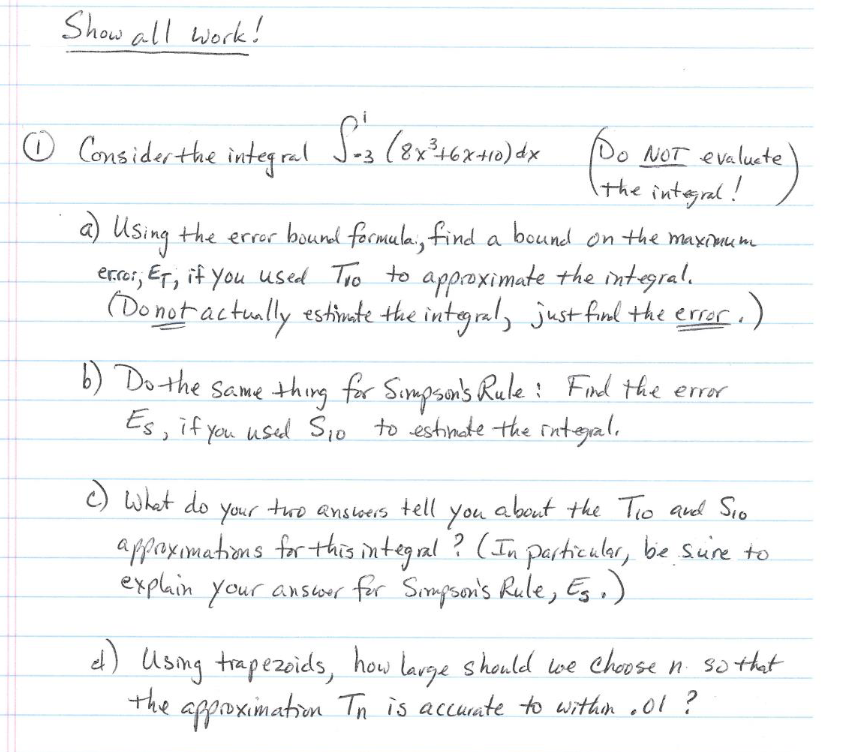 Show all work!
① Consider the integral ∫₋₃¹ (8x³+6x+10)dx (Do NOT evaluate
the integral!)
a) Using the error bound formula, find a bound on the maximum
error, E_T, if you used T₁₀ to approximate the integral.
(Do not actually estimate the integral, just find the error.)
b) Do the same thing for Simpson's Rule: Find the error
E_S, if you used S₁₀ to estimate the integral.
c) What do your two answers tell you about the T₁₀ and S₁₀
approximations for this integral? (In particular, be sure to
explain your answer for Simpson's Rule, E_S.)
d) Using trapezoids, how large should we choose n so that
the approximation Tn is accurate to within .01?